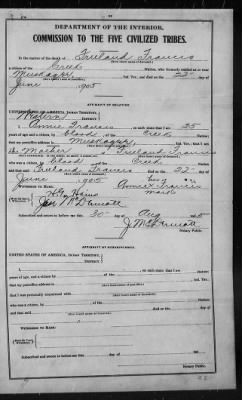 DEPARTMENT OF THE INTERIOR,
COMMISSION TO THE FIVE CIVILIZED TRIBES.
In the matter of the death of Freeland Francis
a citizen of the Creek
Muskogee Ind. Ter., and died on the 22 day of
June, 1905
AFFIDAVIT OF RELATIVE.
UNITED STATES OF AMERICA, INDIAN TERRITORY,
Western DISTRICT.
I, Annie Francis, on oath state that I am 25
years of age and a citizen by blood of the Creek
that my postoffice address is Muskogee, Ind. Ter.;
that I am the Mother of Freeland Francis
who was a citizen, by blood, of the Creek
and that said Freeland Francis died on the 22 day of
June, 1905
WITNESSES TO MARK:
Annie x Francis
mark
Subscribed and sworn to before me this 30 day of Aug 1905
J McDermott
Notary Public.
AFFIDAVIT OF ACQUAINTANCE.
UNITED STATES OF AMERICA, INDIAN TERRITORY,
DISTRICT.
I, on oath state that I am
years of age, and a citizen by of the
that my postoffice address is Ind. Ter.;
that I was personally acquainted with
who was a citizen, by of the
and that said died on the day of
WITNESSES TO MARK:
Subscribed and sworn to before me this day of
Notary Public.